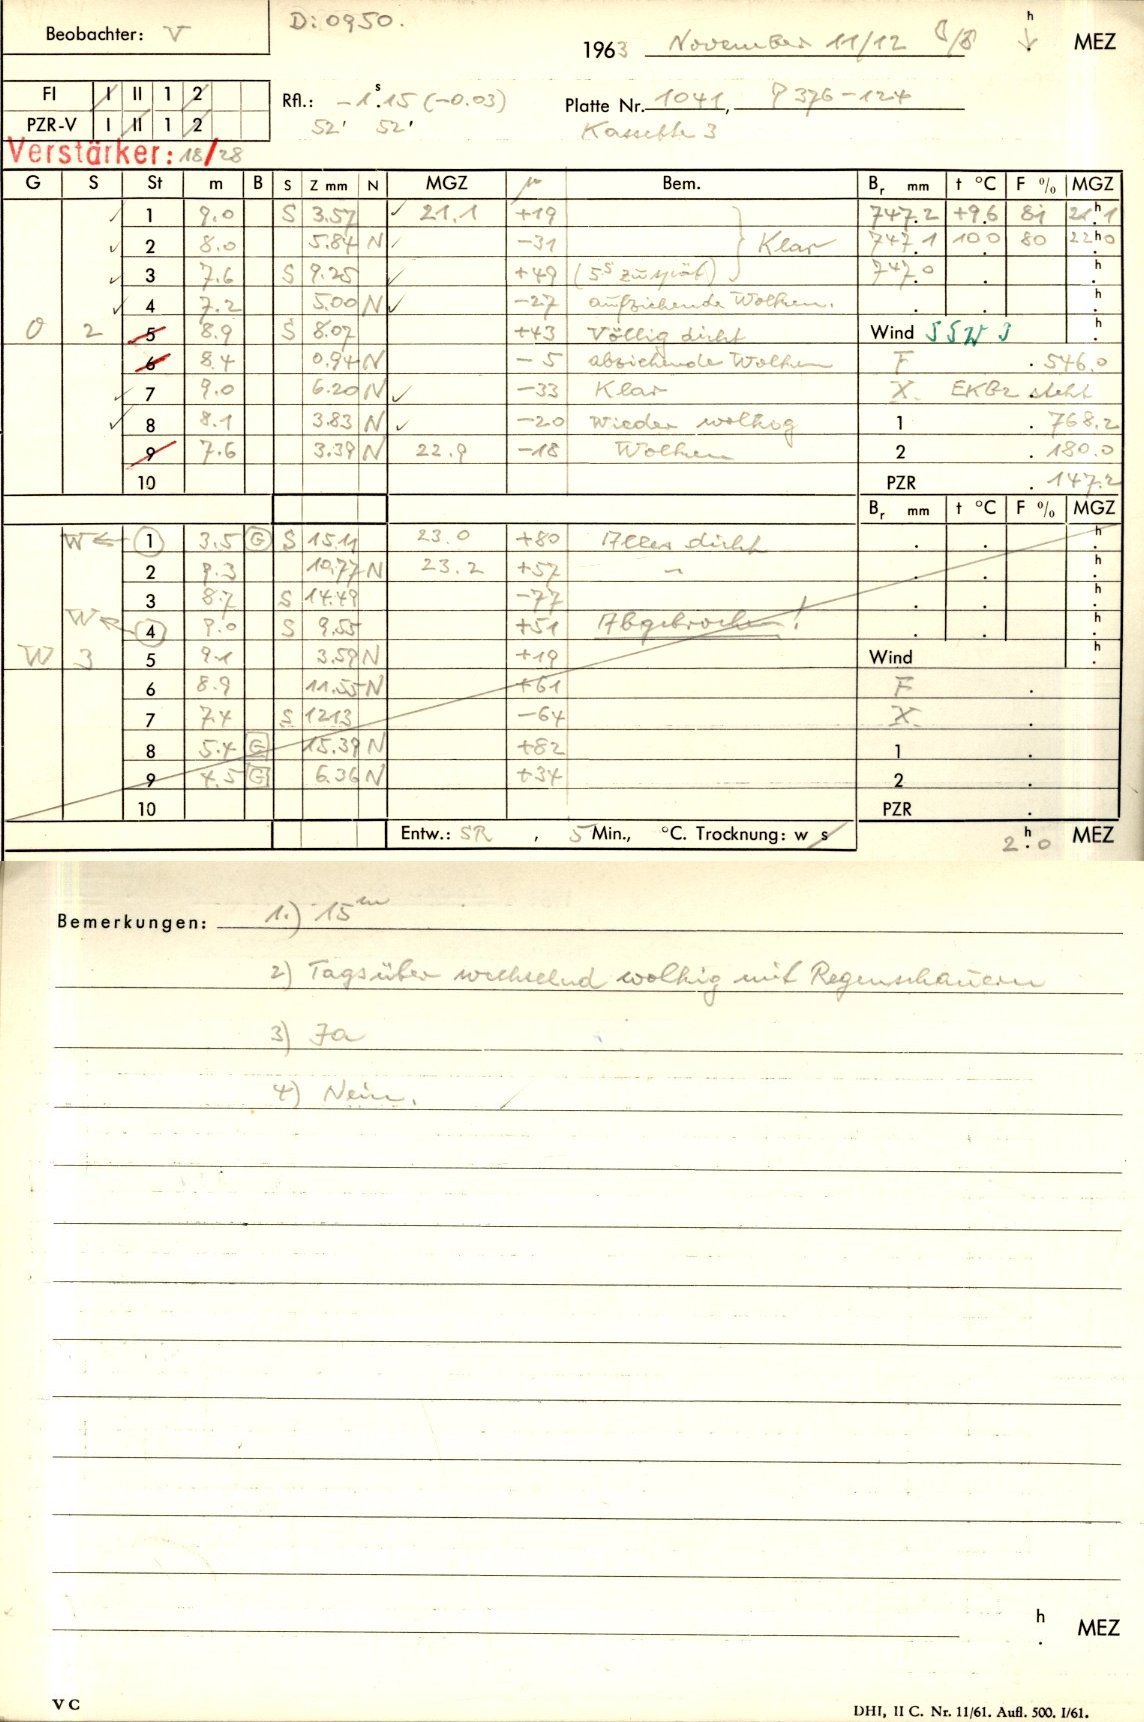 D: 0950.
Beobachter: V
1963 November 11/12 8/8 h MEZ
FI I II 1 2
Rfl.: -1.s15 (-0.03) Platte Nr. 1041, P 376-124
PZR-V I II 1 2
52' 52' Kassette 3
Verstärker: 18/28
G S St m B S Z mm N MGZ µ Bem. Br mm t °C F % MGZ
✓ 1 9.0 S 3.57 ✓ 21.1 +19 747.2 +9.6 81 21h1
✓ 2 8.0 5.84 N ✓ -31 Klar 747.1 10.0 80 22h0
✓ 3 7.6 S 9.25 ✓ +49 (5s zu spät) 747.0 h
✓ 4 7.2 5.00 N ✓ -27 aufziehende Wolken. h
O 2 5 8.9 S 8.07 +43 Völlig dicht Wind SSW 3 h
6 8.4 0.94 N -5 abziehende Wolken F 546.0
✓ 7 9.0 6.20 N ✓ -33 Klar X EKB2 steht
✓ 8 8.1 3.83 N ✓ -20 wieder wolkig 1 768.2
9 7.6 3.39 N 22.9 -18 Wolken 2 180.0
10 PZR 147.2
Br mm t °C F % MGZ
W ← 1 3.5 G S 15.11 23.0 +80 Alles dicht h
2 9.3 10.77 N 23.2 +57 ~ h
3 8.7 S 14.49 -77 h
W ← 4 9.0 S 9.55 +51 Abgebrochen! h
W 3 5 9.1 3.59 N +19 Wind h
6 8.9 11.55 N +61 F
7 7.4 S 12.13 -64 X
8 5.4 G 15.39 N +82 1
9 4.5 G 6.36 N +34 2
10 PZR
Entw.: SR , 5 Min., °C. Trocknung: w s 2h0 MEZ
Bemerkungen: 1.) 15m
2) Tagsüber wechselnd wolkig mit Regenschauern
3) Ja
4) Nein.
h MEZ
V C
DHI, II C. Nr. 11/61. Aufl. 500. I/61.